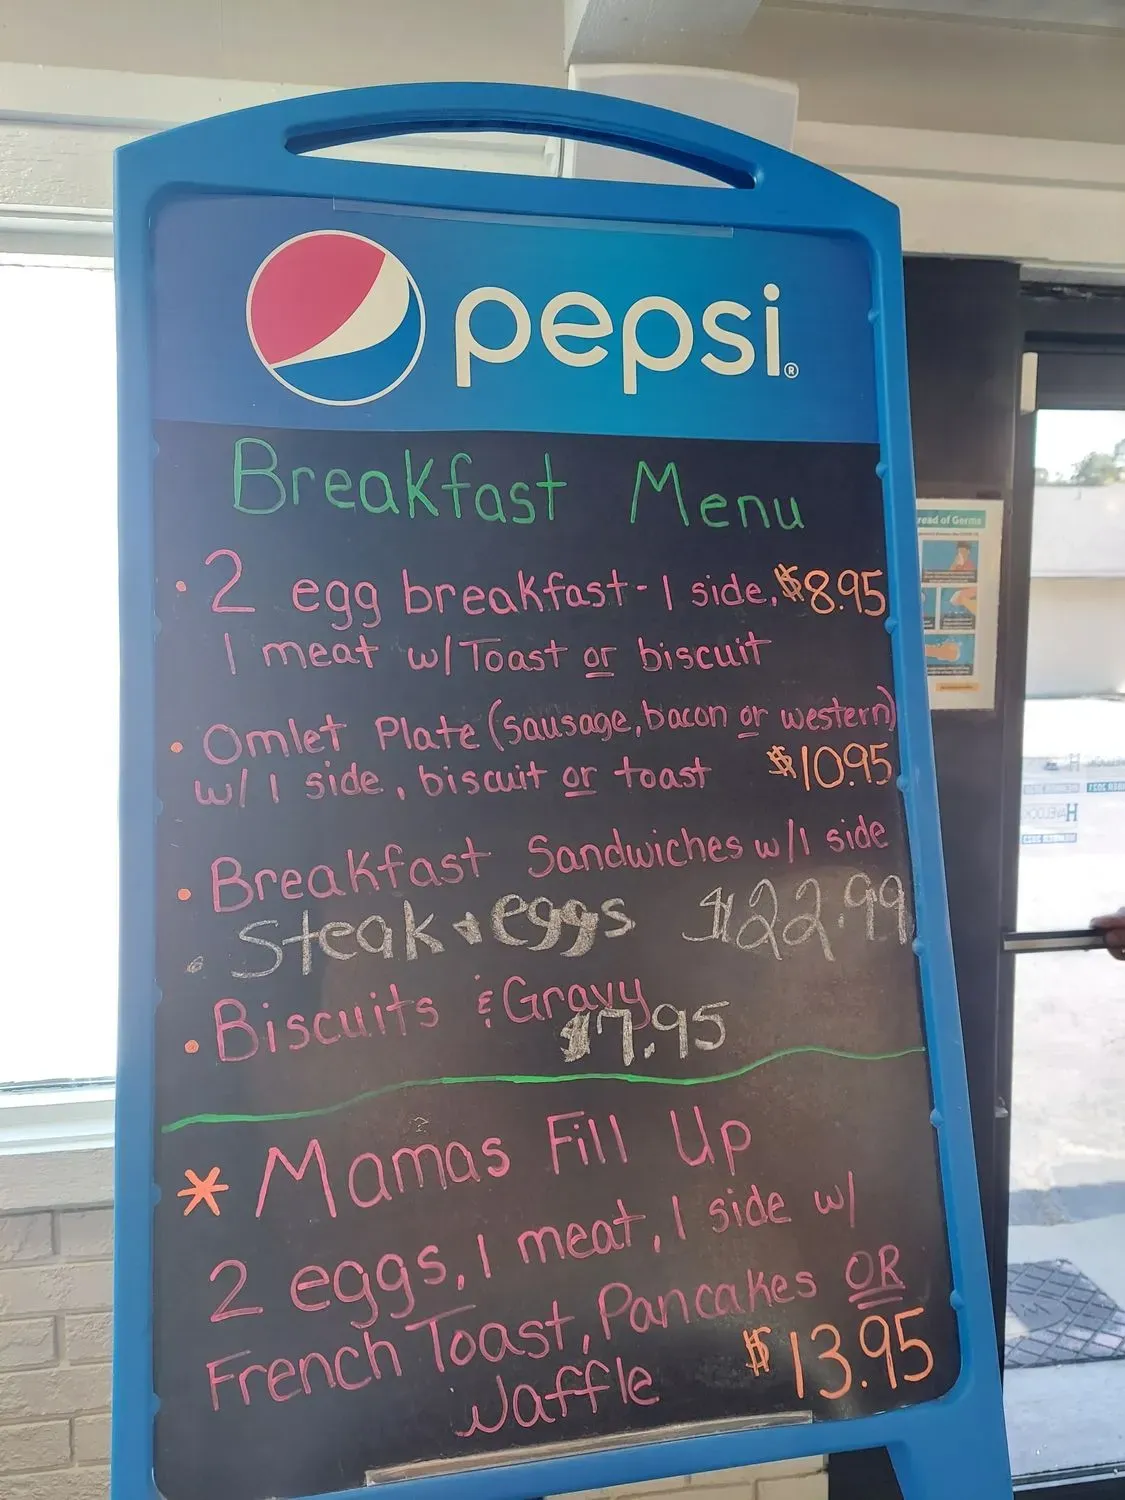 pepsi®
Breakfast Menu
• 2 egg breakfast - 1 side, $8.95
1 meat w/Toast or biscuit
• Omlet Plate (sausage, bacon or western)
w/ 1 side, biscuit or toast $10.95
• Breakfast Sandwiches w/1 side
• Steak + eggs $22.99
• Biscuits & Gravy
$7.95
* Mamas Fill Up
2 eggs, 1 meat, 1 side w/
French Toast, Pancakes OR
Waffle $13.95
read of Germs